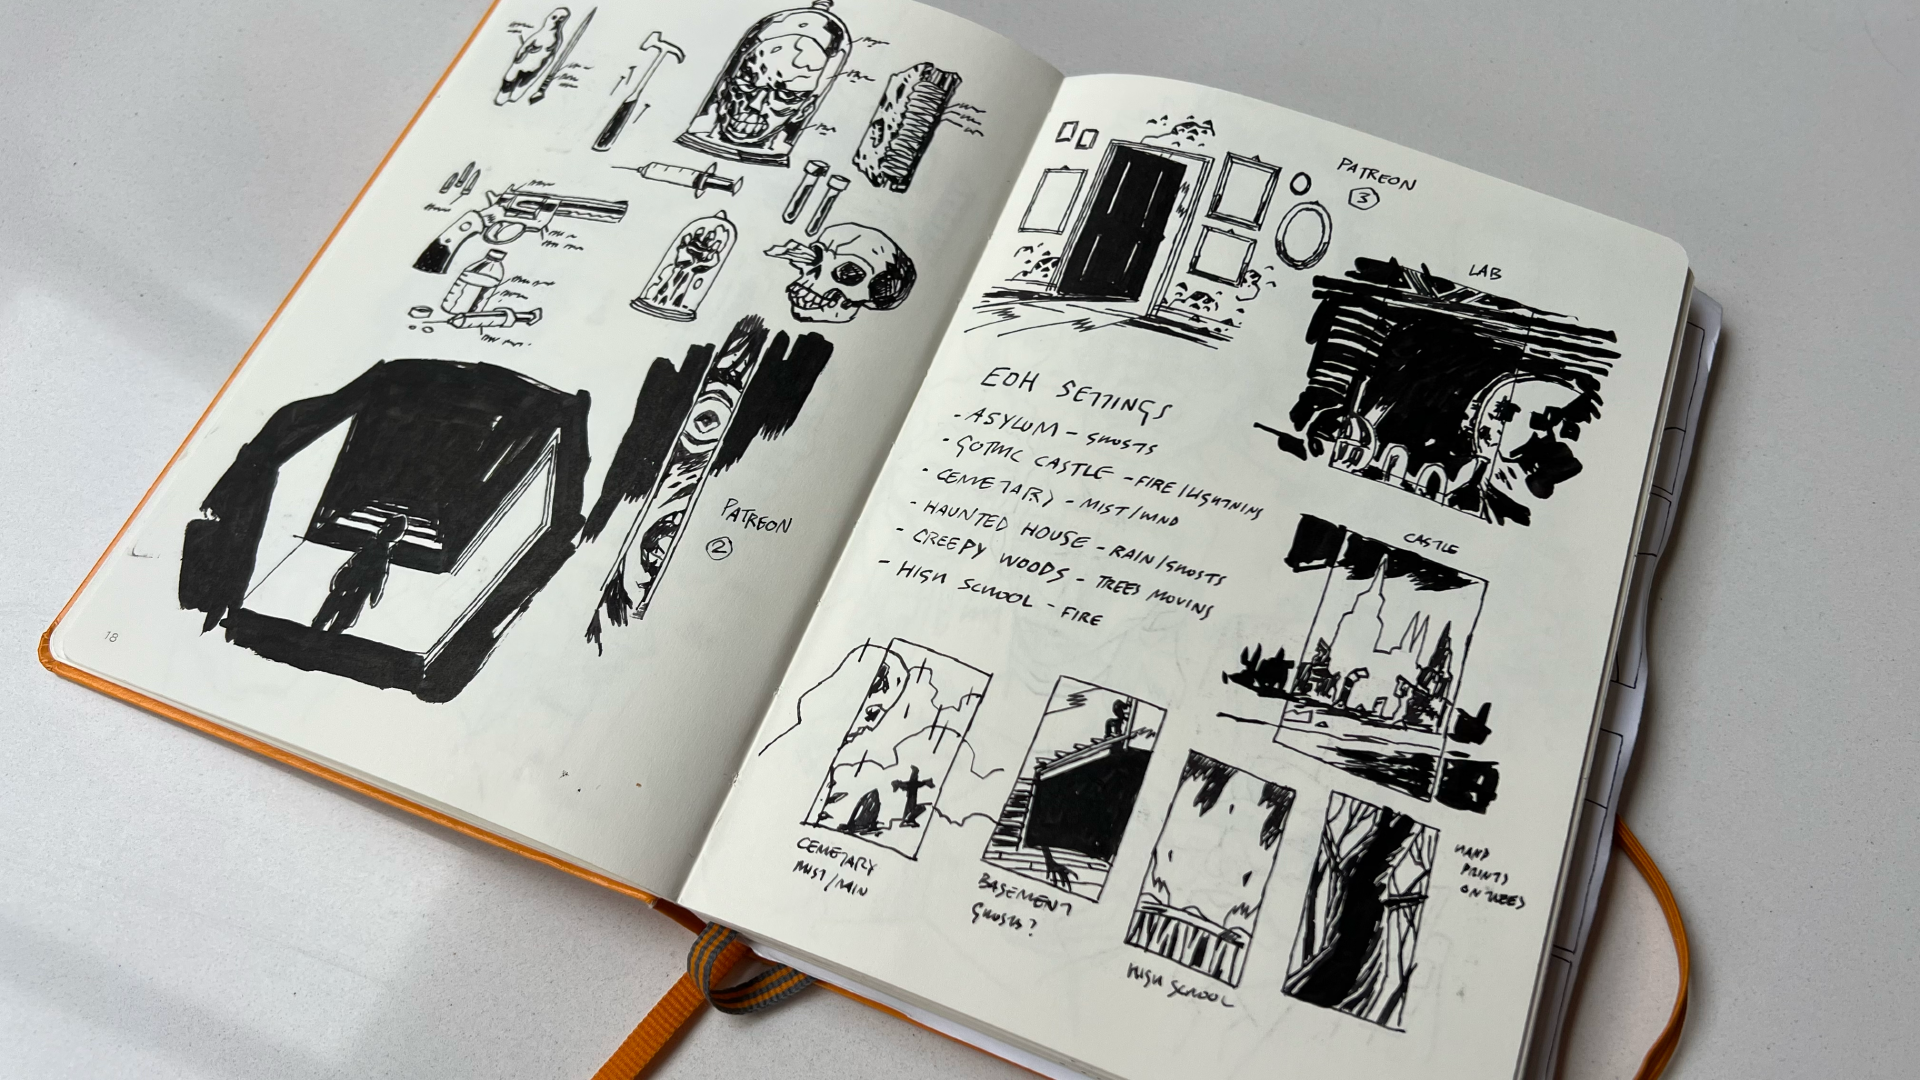 PATREON
2
18
PATREON
3
LAB
EOH SETTINGS
- ASYLUM - GHOSTS
- GOTHIC CASTLE - FIRE/LIGHTNING
- CEMETARY - MIST/WIND
- HAUNTED HOUSE - RAIN/GHOSTS
- CREEPY WOODS - TREES MOVING
- HIGH SCHOOL - FIRE
CASTLE
CEMETARY
MIST/RAIN
BASEMENT
GHOSTS?
HIGH SCHOOL
HAND
PRINTS
ON TREES